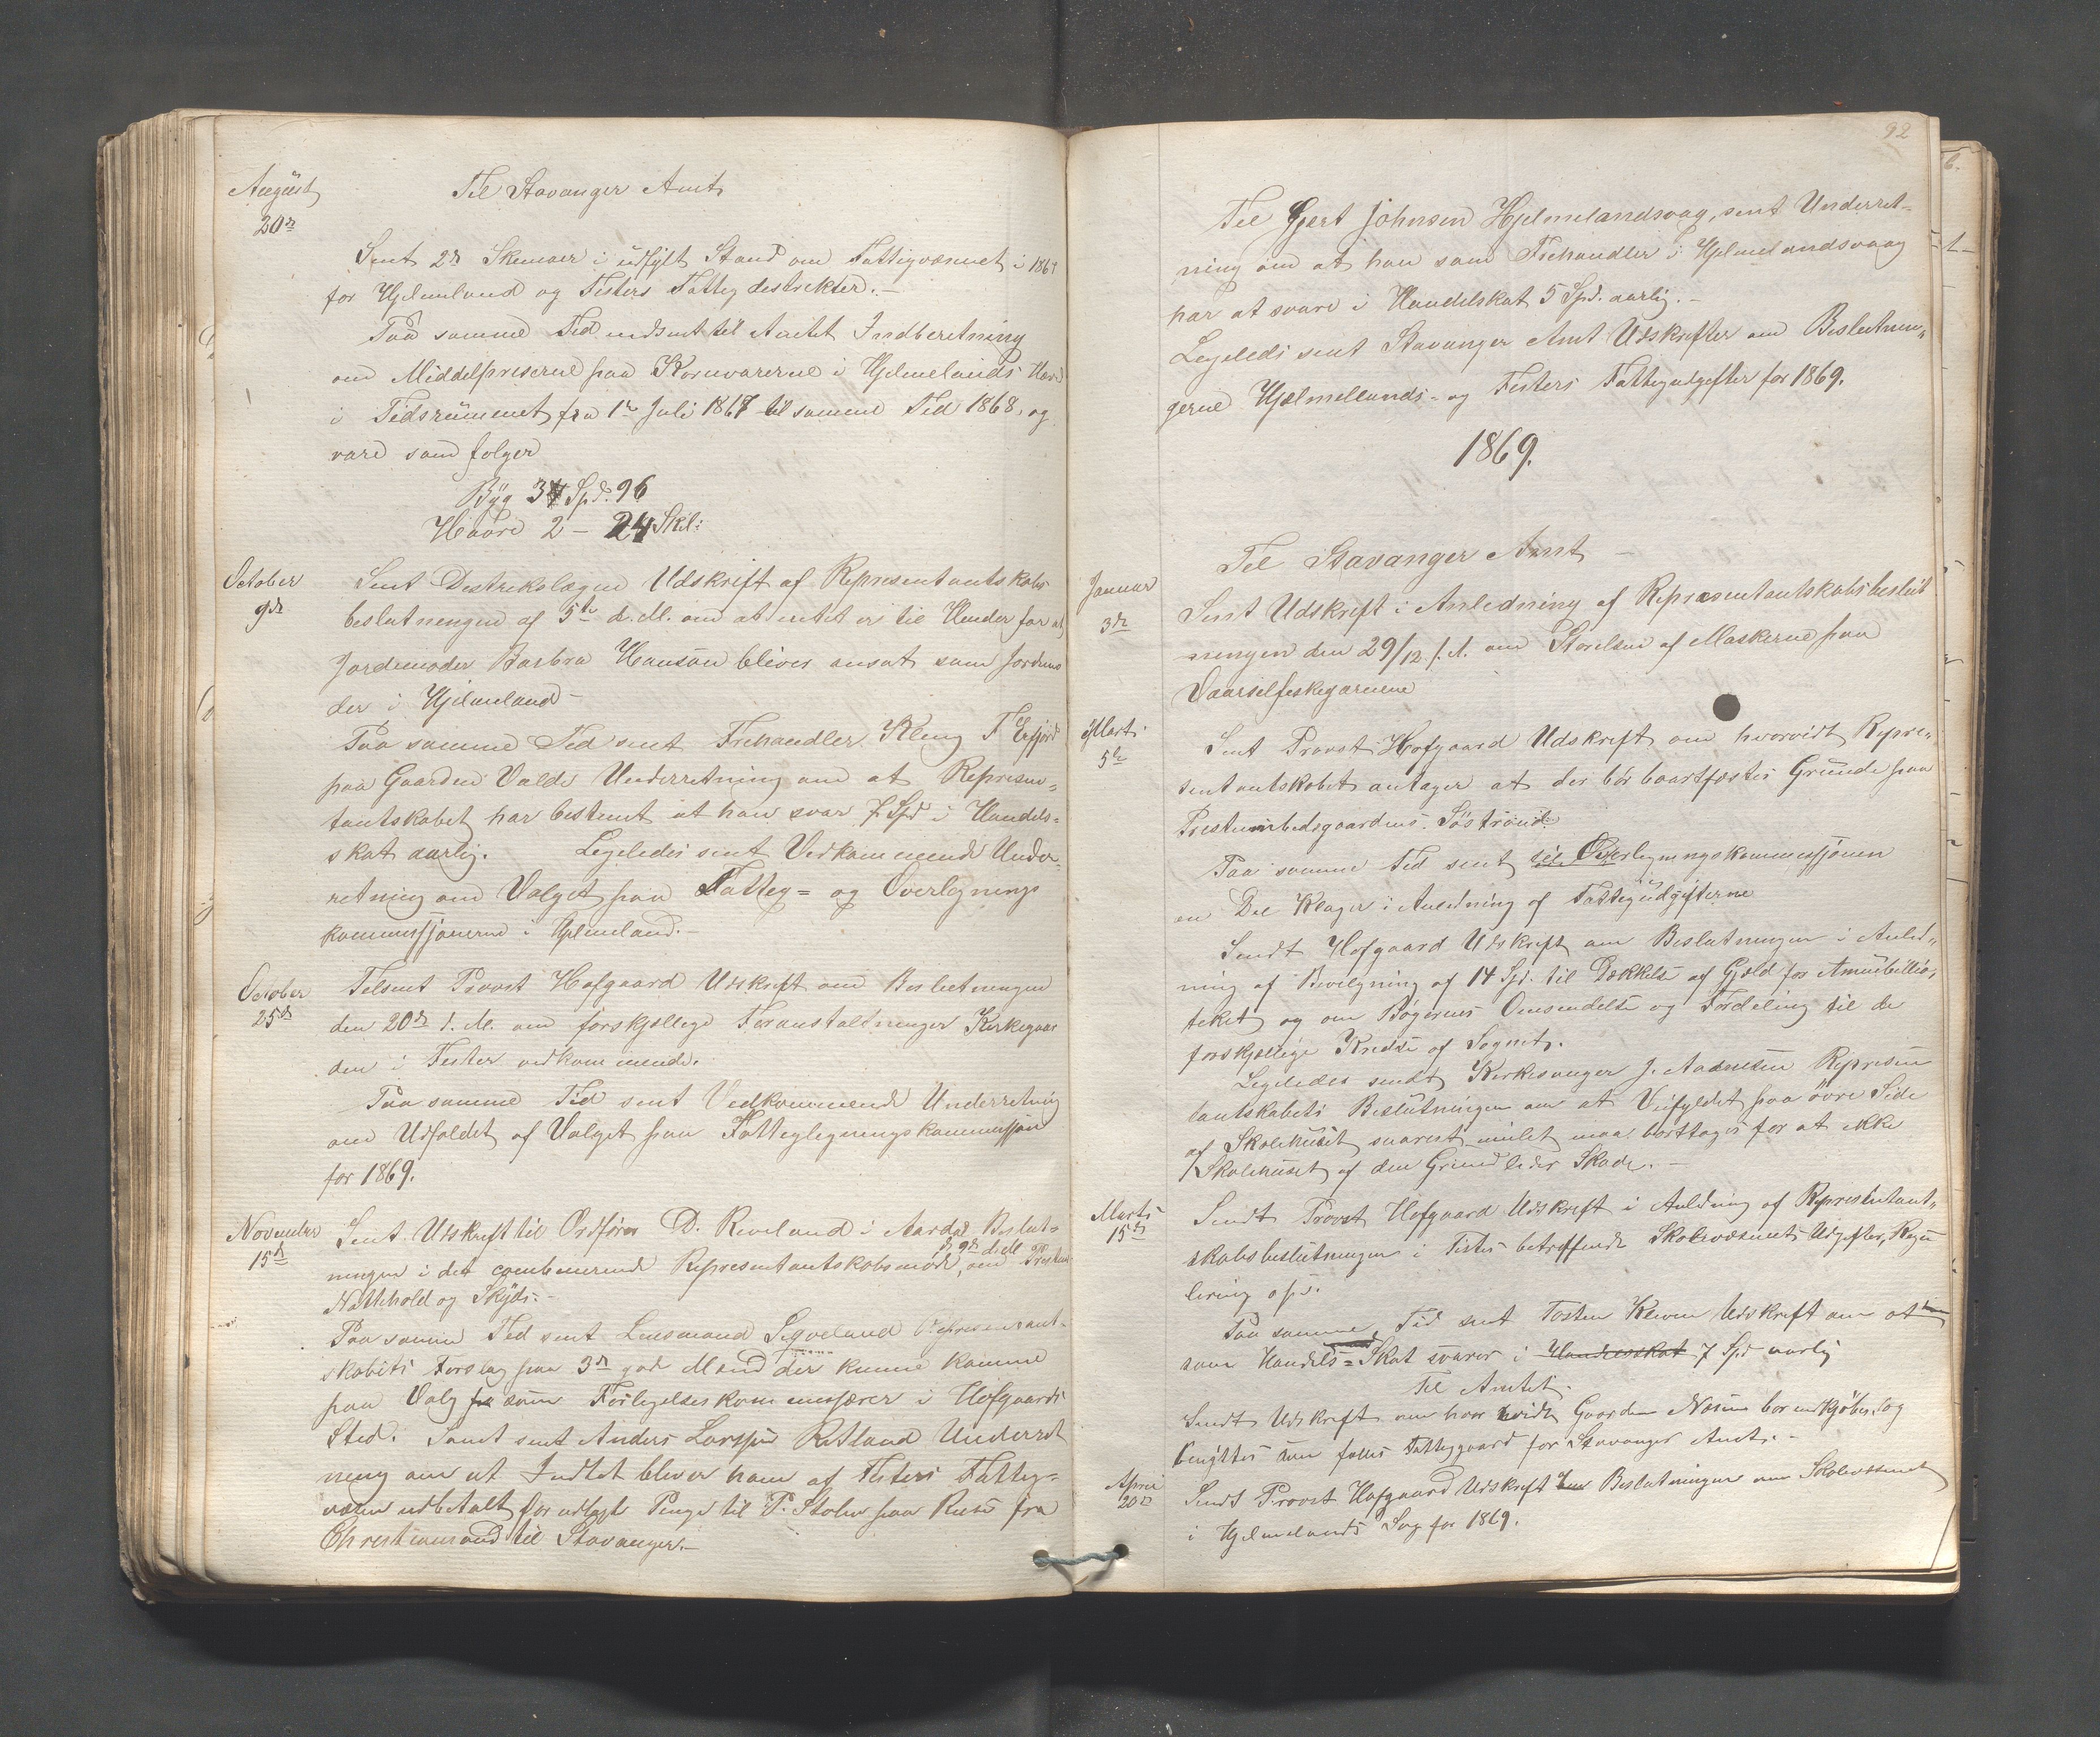 August
20de
Til Stavanger Amt
Sent 2de Skemaer i udfylt Stand om Fattigvæsnet i 1867
for Hjelmeland og Fisters Fattigdestrikter.-
Paa samme Tid indsent til Amtet Indberetning
om Middelpriserne paa Kornvarerne i Hjelmelands Hered
i Tidsrummet fra 1te Juli 1867 til samme Tid 1868, og
vare som følger
Byg 3 Spd. 96
Havre 2 - 24 Skil:
October
9de
Sent Destrekslægen Udskrift af Representantskabs
beslutningen af 5te d. M. om at intet er til Hinder for at
Jordemoder Barbra Hansen bliver ansat som Jordemo
der i Hjelmeland-
Paa samme Tid sent Frihandler Kleng T. Erfjord
paa Gaarden Valde Underretning om at Represen=
tantskabet har bestemt at han svar 7 Spd i Handels=
skat aarlig. Legeledes sent Vedkommende Under-
retning om Valget paa Fatteg= og Overlegnings
kommissjonerne i Hjelmeland.-
October
25de
Telsent Provst Hofgaard Udskrift om Beslutningen
den 20de d. M. om forskjellege Foranstaltninger Kirkegaar
den i Fister vedkommende.
Paa samme Tid sent Vedkommende Underretning
om Udfaldet af Valget paa Fatteglegningskommissjon
for 1869.
November
15de
Sent Udskrift til Ordfører D. Riveland i Aardal Beslut=
ningen i det combinerende Representantskabsmøde, d. 9de d. M. om Prestens
Nattehold og Skyds.-
Paa samme Tid sent Lensmand Segveland Representant-
skabets Forslag paa 3de gode Mænd der kunne komme
paa Valg som Forlegelseskommissærer i Hofgaards
Sted. Samt sent Anders Larssen Ritland Underret
ning om at Intet bliver ham af Fisters Fatteg=
væsen udbetalt for udlagte Penge til P. Stolen paa Reise fra
Christiansand til Stavanger.-
92
Til Gjert Johnsen Hjelmelandsvag, sent Underret-
ning om at han som Frihandler i Hjelmelandsvaag
har at svare i Handelskat 5 Spd. aarlig.-
Legeledes sent Stavanger Amt Udskrifter om Beslutnin„
gerne Hjelmellands- og Fisters Fattegudgifter for 1869.
1869.
Til Stavanger Amt -
Januar
3de
Sent Udskrift i Anledning af Representantskabsbeslut
ningen den 29/12 f. A. om Størelsen af Maskerne paa
Vaarsilfeskegarnene
Marts
5te
Sent Provst Hofgaard Udskrift om hvorvidt Repre„
sentantskabet antager at der bør bortfæstes Grunde paa
Prestembedsgaardens Søstrand.
Paa samme Tid sent til Overlegningskommissjonen
en Del Klager i Anledning af Fattegudgifterne
Sendt Hofgaard Udskrift om Beslutningen i Anled„
ning af Bevilgning af 14 Spd. til Dækkelse af Gjæld for Amunbibliio„
teket og om Bøgernes Omsendelse og Fordeling til de
forskjellige Kredse af Sognet.
Legeledes sendt Kirkesanger J. Aadnesen Represen
tantskabets Beslutningen om at Veifyldet paa øvre Side
af Skolehuset snarest mulet maa borttages for at ikke
Skolehuset af den Grund lider Skade.-
Marts
15de
Sendt Provst Hofgaard Udskrift i Anledning af Representant„
skabsbeslutningen i Fister betreffende Skolevæsnets Udgefter, Regu
lering osv.
Paa samme Tid sent Tosten Kleven Udskrift om at han
som Handels=Skat svarer i Handelsskat 7 Spd aarlig
Til Amtet.
Sendt Udskrift om hvorvidt Gaarden Næsum bør indkjøbes og
benyttes som fælles Fatteggaard for Stavanger Amt.-
April
20de
Sendt Provst Hofgaard Udskrift Beslutningen om Skolevæsnet
i Hjelmelands Sog for 1869.